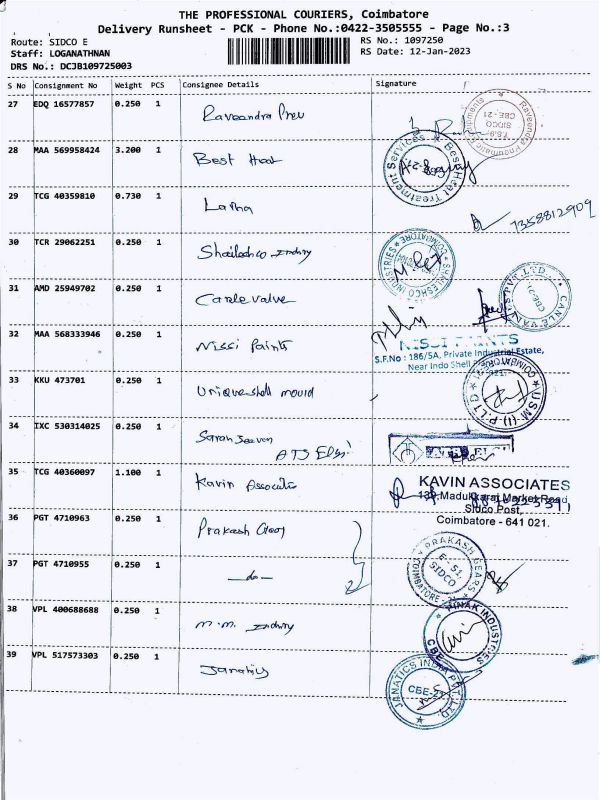 THE PROFESSIONAL COURIERS, Coimbatore
Delivery Runsheet - PCK - Phone No.:0422-3505555 - Page No.:3
Route: SIDCO E
RS No.: 1097250
Staff: LOGANATHNAN
RS Date: 12-Jan-2023
DRS No.: DCJB109725003
S No Consignment No Weight PCS Consignee Details Signature
27 EDQ 16577857 0.250 1 Raveendra Pneu
28 MAA 569958424 3.200 1 Best Heat
Services & Best Heat Treatment
29 TCG 40359810 0.730 1 Latha
7358812909
30 TCR 29062251 0.250 1 Shaileshco Indtry
SHAILESHCO INDUSTRIES COIMBATORE
31 AMD 25949702 0.250 1 Canle valve
CBE-21
32 MAA 568333946 0.250 1 Nissi Paints
NISSI PAINTS
S.F.No : 186/5A, Private Industrial Estate,
Near Indo Shell
33 KKU 473701 0.250 1 Unique shell mould
U.S.M (I) P. LTD COIMBATORE
34 IXC 530314025 0.250 1 Saran Jeeven
ATS Elgi
35 TCG 40360097 1.100 1 Kavin Associates
KAVIN ASSOCIATES
139, Madukkarai Market Road
Sidco Post,
Coimbatore - 641 021.
36 PGT 4710963 0.250 1 Prakash Gears
37 PGT 4710955 0.250 1 -do-
PRAKASH GEARS COIMBATORE
E - 51, SIDCO
38 VPL 400688688 0.250 1 M.M. Indtry
PINAK INDUSTRIES CBE
39 VPL 517573303 0.250 1 Janatics
JANATICS INDIA PVT LTD.
CBE-21